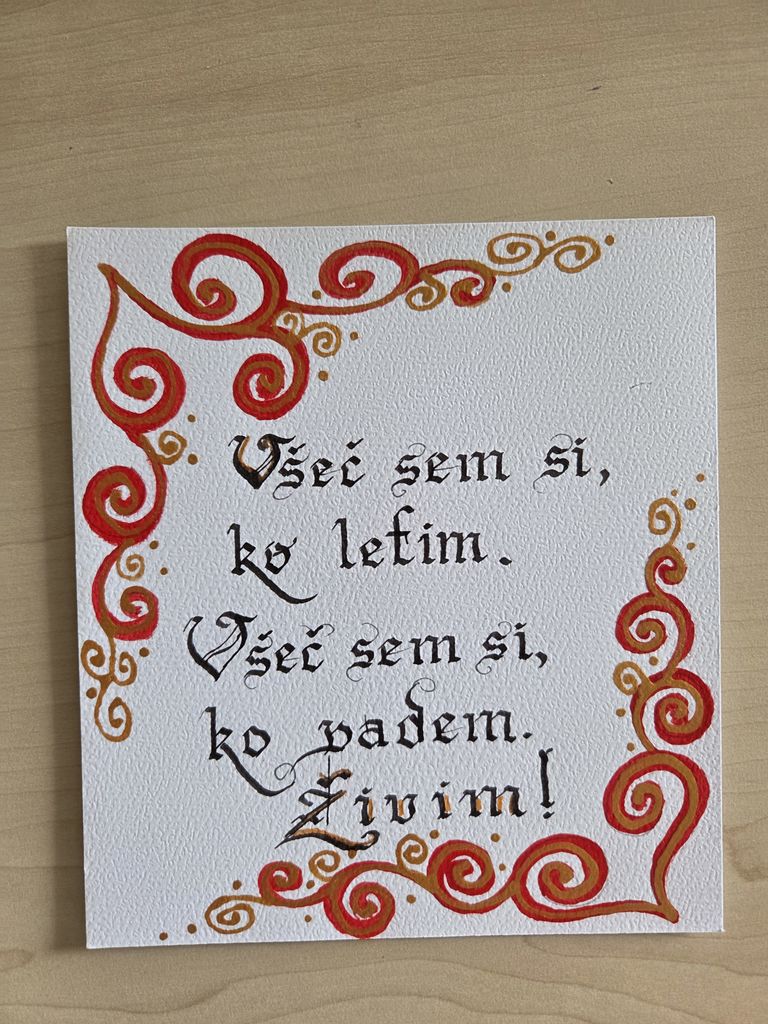 Všeč sem si,
ko letim.
Všeč sem si,
ko padem.
Živim!